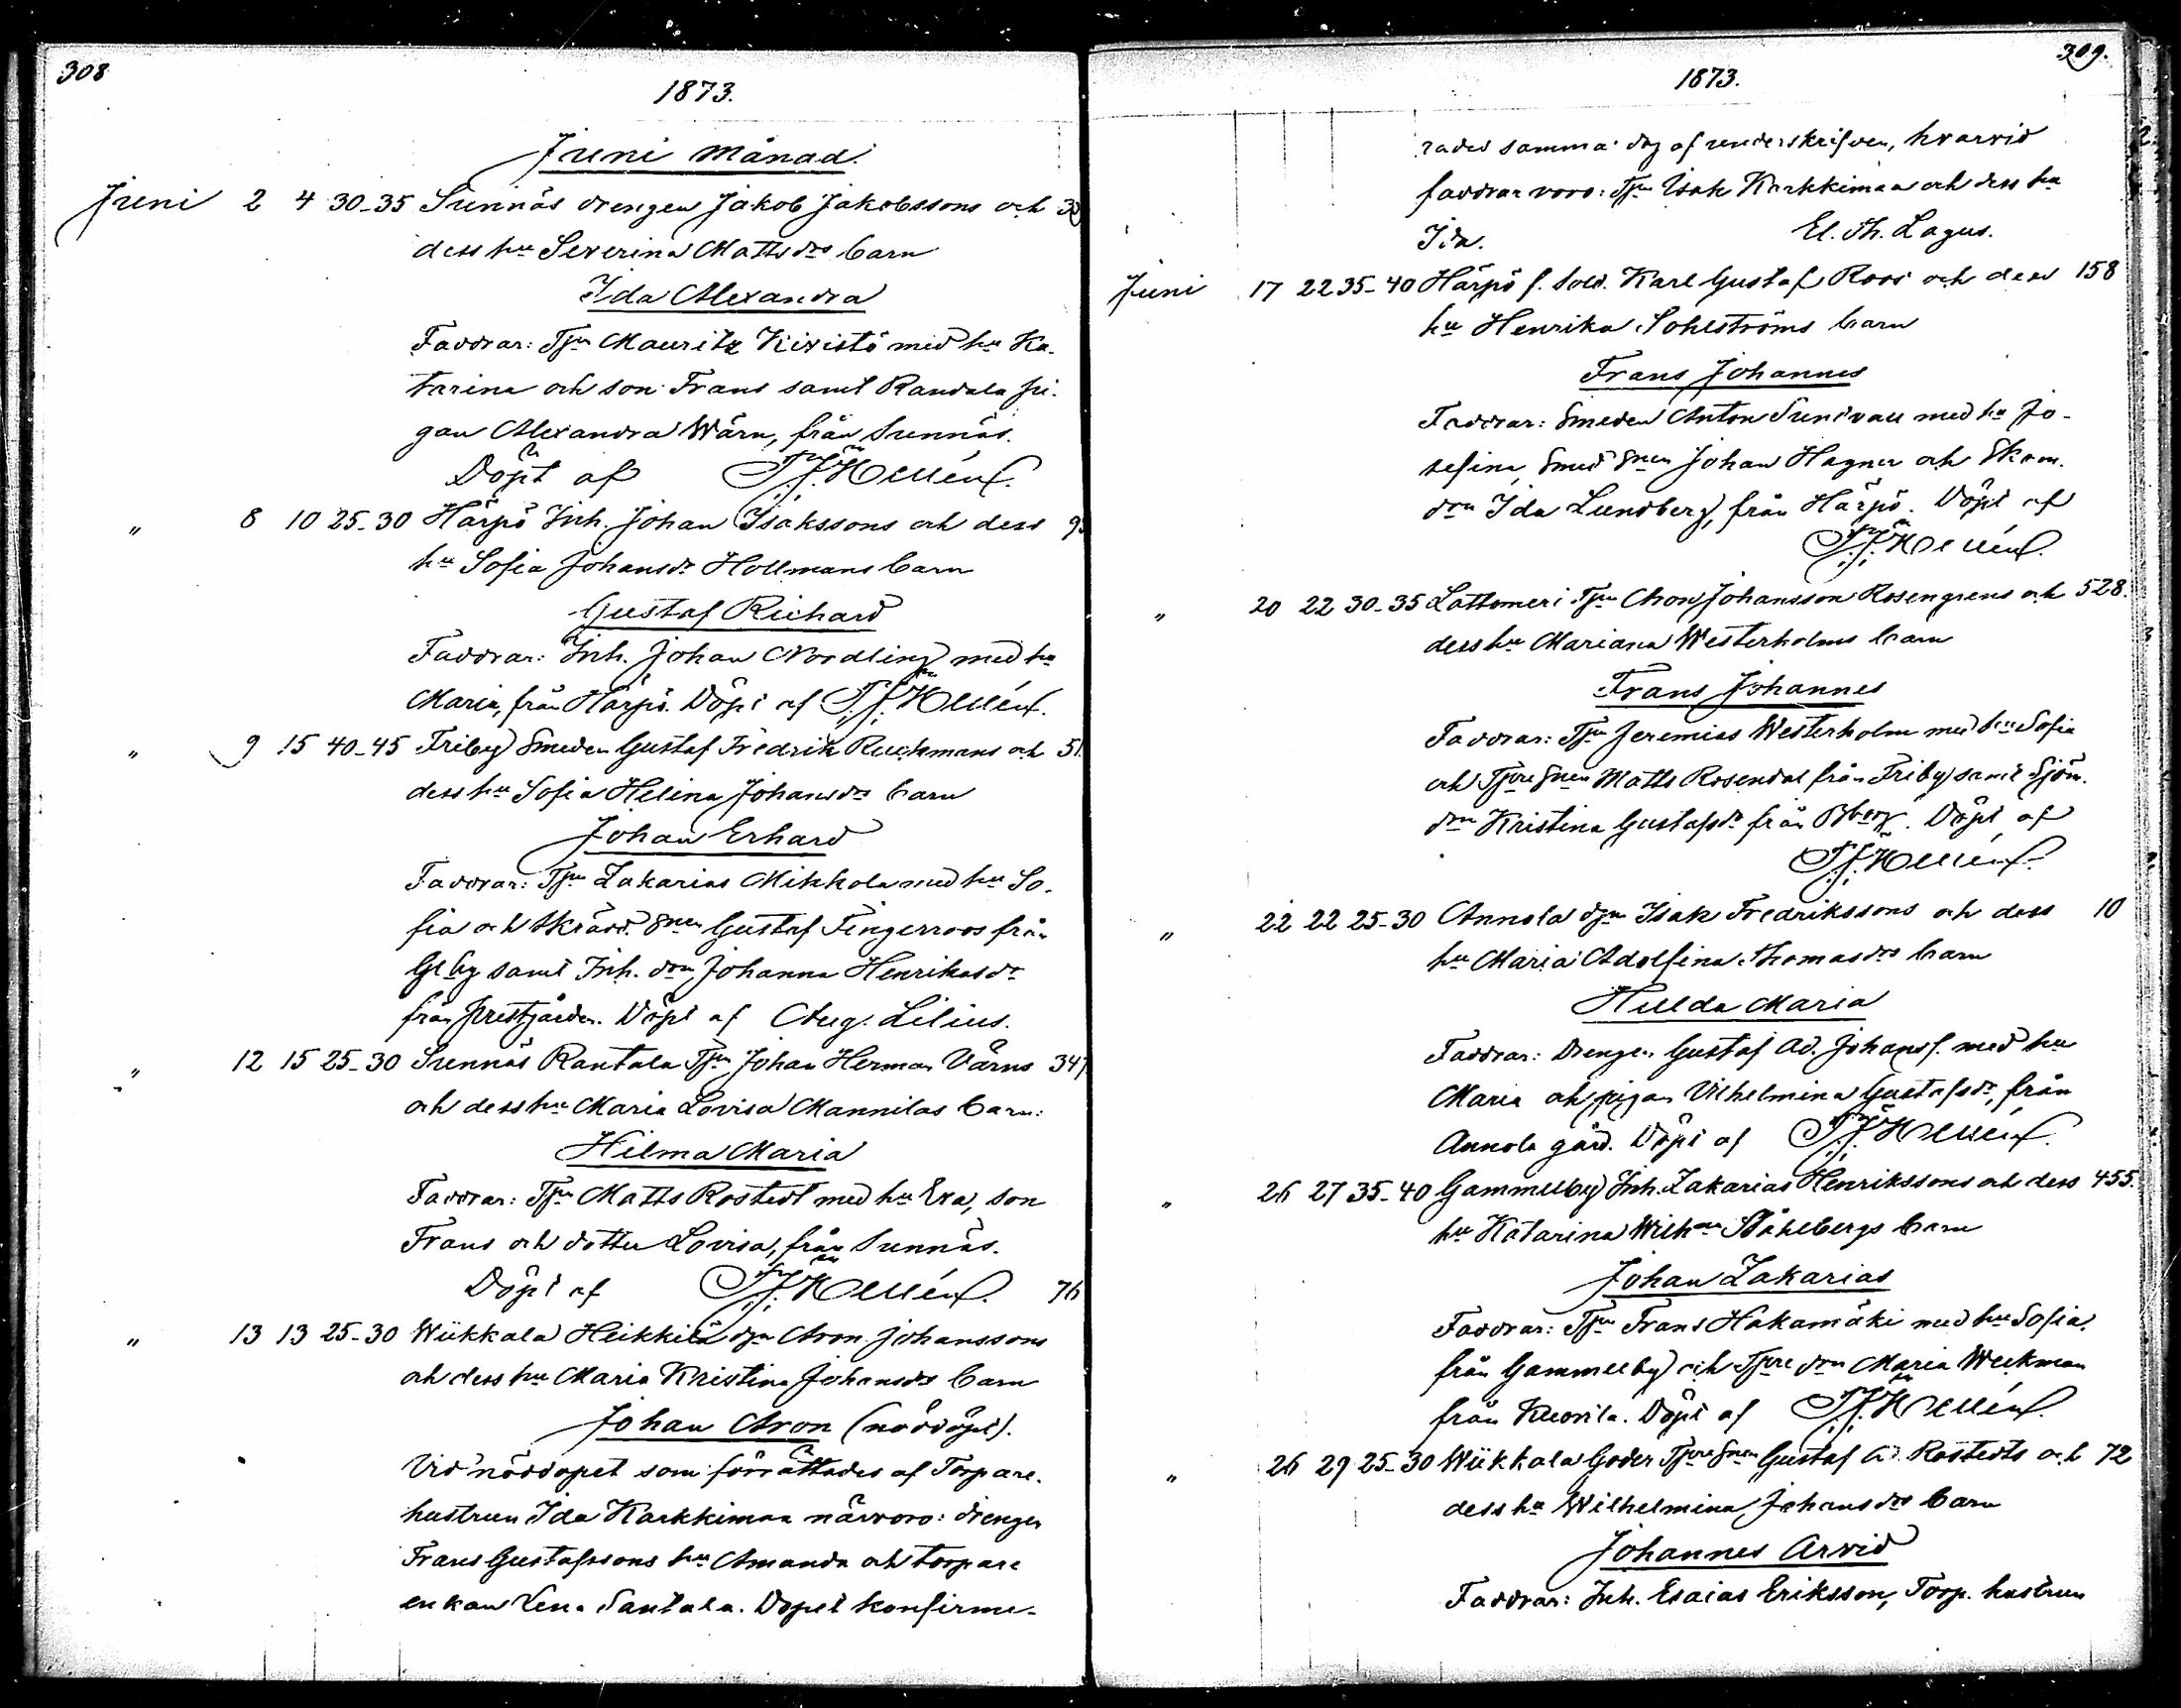 308
1873.
Juni månad.
Juni 2 4 30-35 Sunnäs drengen Jakob Jakobssons och 38
dess hu Severina Mattsdrs barn
Ida Alexandra
Faddrar: Tjn Mauritz Kivistö med hu Ka-
tarina och son Frans samt Randala pi-
gan Alexandra Wärn, från Sunnäs.
Döpt af
" 8 10 25-30 Härpö Inh. Johan Isakssons och dess 9
hu Sofia Johansdr Hollmans barn
Gustaf Richard
Faddrar: Inh. Johan Nordling med hu
Maria, från Härpö. Döpt af
" 9 15 40-45 Friby Smeden Gustaf Fredrik och 51
dess hu Sofia Helina Johansdrs barn
Johan Erhard
Faddrar: Tjn Zakarias Mikkola med hu So-
fia och Skrädd. Snen Gustaf Fingerroos från
Glby samt Inh. drn Johanna Henriksdr
från Prestgården. Döpt af Aug. Lilius.
" 12 15 25-30 Sunnäs Rantala Tjn Johan Herman Värns 347
och dess hu Maria Lovisa Mannilas barn:
Hilma Maria
Faddrar: Tjn Matts Rostedt med hu Eva, son
Frans och dotter Lovisa, från Sunnäs.
Döpt af 76
" 13 13 25-30 Wiikkala Heikkilä dgn Aron Johanssons
och dess hu Maria Kristina Johansdrs barn
Johan Aron (nöddöpt).
Vid nöddopet som förrättades af Torpare-
hustrun Ida Karkkimaa närvoro: drengen
Frans Gustafssons hu Amanda och torpare
enkan Lena Santala. Dopet konfirme-
309.
1873.
rades samma dag af underskrifven, hvarvid
faddrar voro: Tjn Isak Karkkimaa och dess hu
Ida. El. Th. Lagus.
Juni 17 22 35-40 Härpö f. Sold. Karl Gustaf Roos och dess 158
hu Henrika Sohlströms barn
Frans Johannes
Faddrar: Smeden Anton Sunivall med hu Jo-
sefina, Smed Snen Johan Hagner och Skom.
drn Ida Lundberg, från Härpö. Döpt af
" 20 22 30-35 Lattomeri Tjn Aron Johansson Rosengrens och 528.
dess hu Mariana Westerholms barn
Frans Johannes
Faddrar: Tjn Jeremias Westerholm med hu Sofia
och Tjre Snen Matts Rosendal från Friby samt Sjöm.
drn Kristina Gustafsdr från Bborg. Döpt af
" 22 22 25-30 Annola dgn Isak Fredrikssons och dess 10
hu Maria Adolfina Thomasdrs barn
Hulda Maria
Faddrar: Drengen Gustaf Ad. Johansf. med hu
Maria och pigan Vilhelmina Gustafsdr, från
Annola gård. Döpt af
" 26 27 35-40 Gammelby Inh. Zakarias Henrikssons och dess 455.
hu Katarina Wilhna Ståhlbergs barn
Johan Zakarias
Faddrar: Tjn Frans Hakamäki med hu Sofia,
från Gammelby och Tjre drn Maria Weckman
från Kuorila. Döpt af
" 26 29 25-30 Wiikkala Goder Tjre Snen Gustaf Ad. Rostedts och 72
dess hu Wilhelmina Johansdrs barn
Johannes Arvid
Faddrar: Inh. Esaias Eriksson, Torp. hustrun